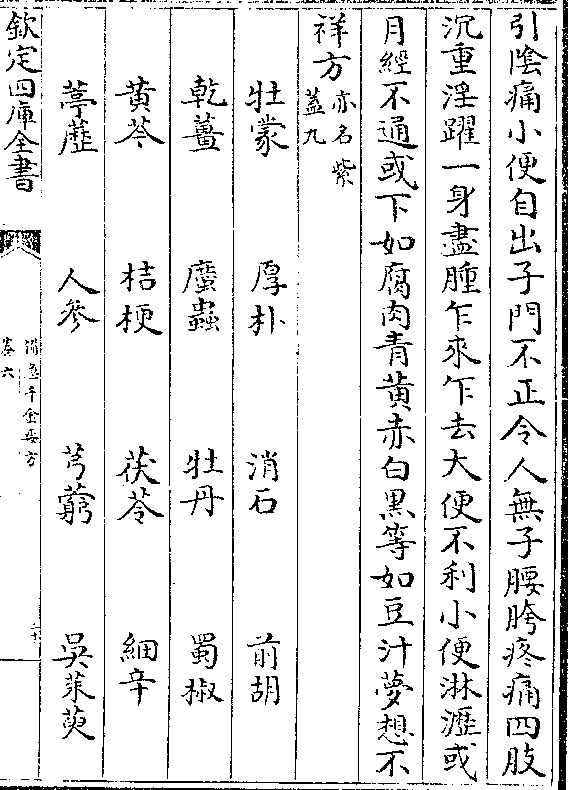 引陰痛小便自出子門不正令人無子腰胯疼痛四肢
沉重淫躍一身盡腫乍來乍去大便不利小便淋瀝或
月經不通或下如腐肉青黄赤白黒等如豆汁夢想不
祥方亦名紫蓋丸
牡蒙 厚朴 消石 前胡
乾薑 䗪蟲 牡丹 蜀椒
黄芩 桔梗 茯苓 細辛
葶藶 人參 芎藭 吳茱萸
欽定四庫全書
備急千金要方
卷六